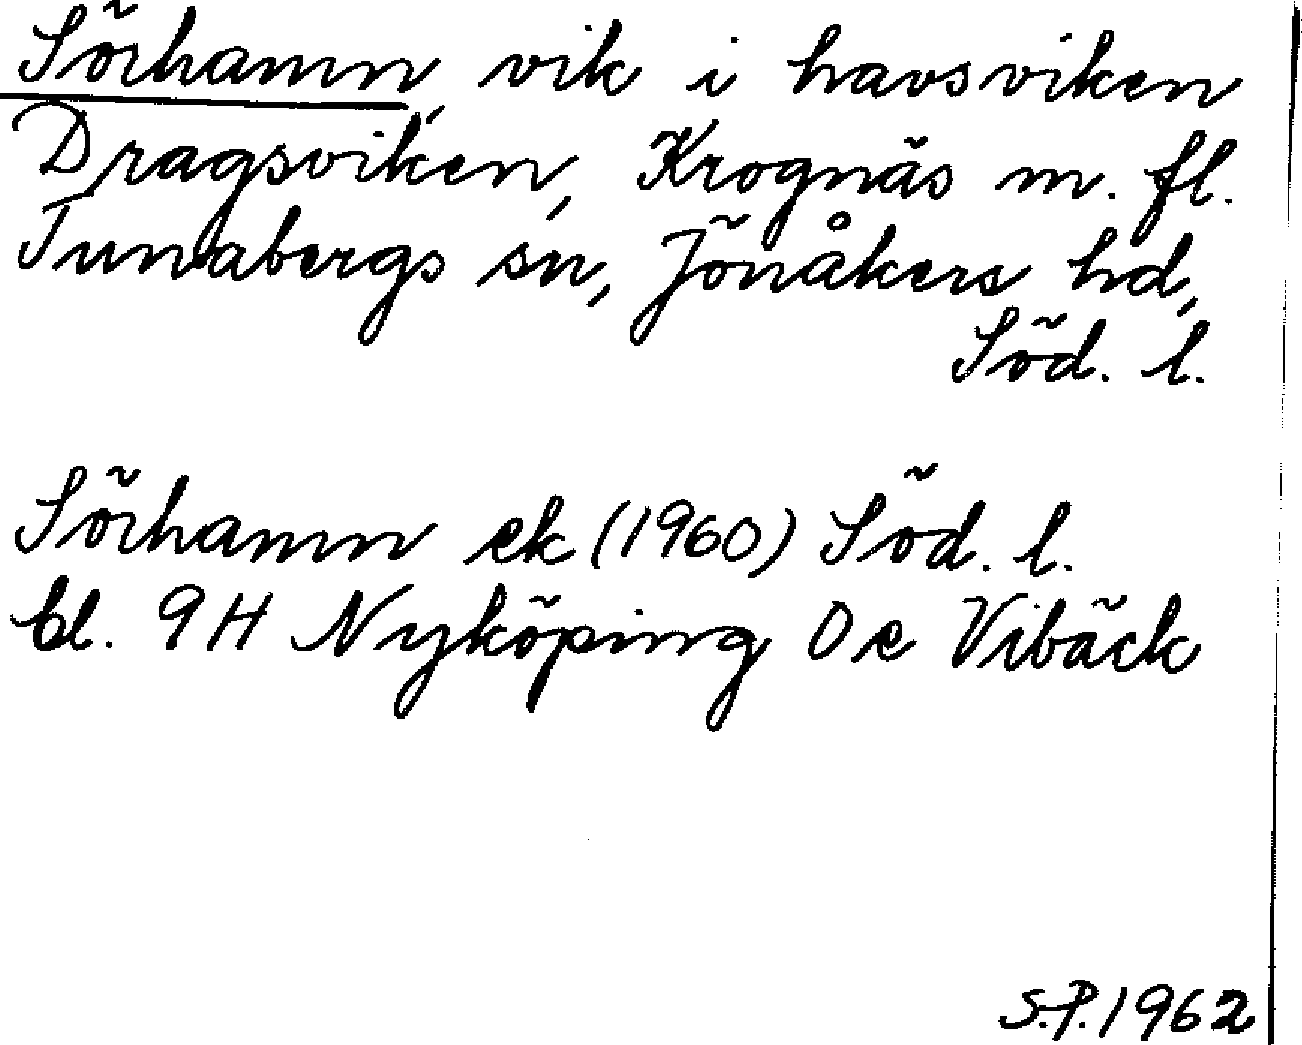 Sörhamn, vik i havsviken
Dragsviken, Krognäs m. fl.
Tunabergs sn, Jönåkers hd,
Söd. l.
Sörhamn ek (1960) Söd. l.
bl. 9H Nyköping 0 e Vibäck
S.P. 1962